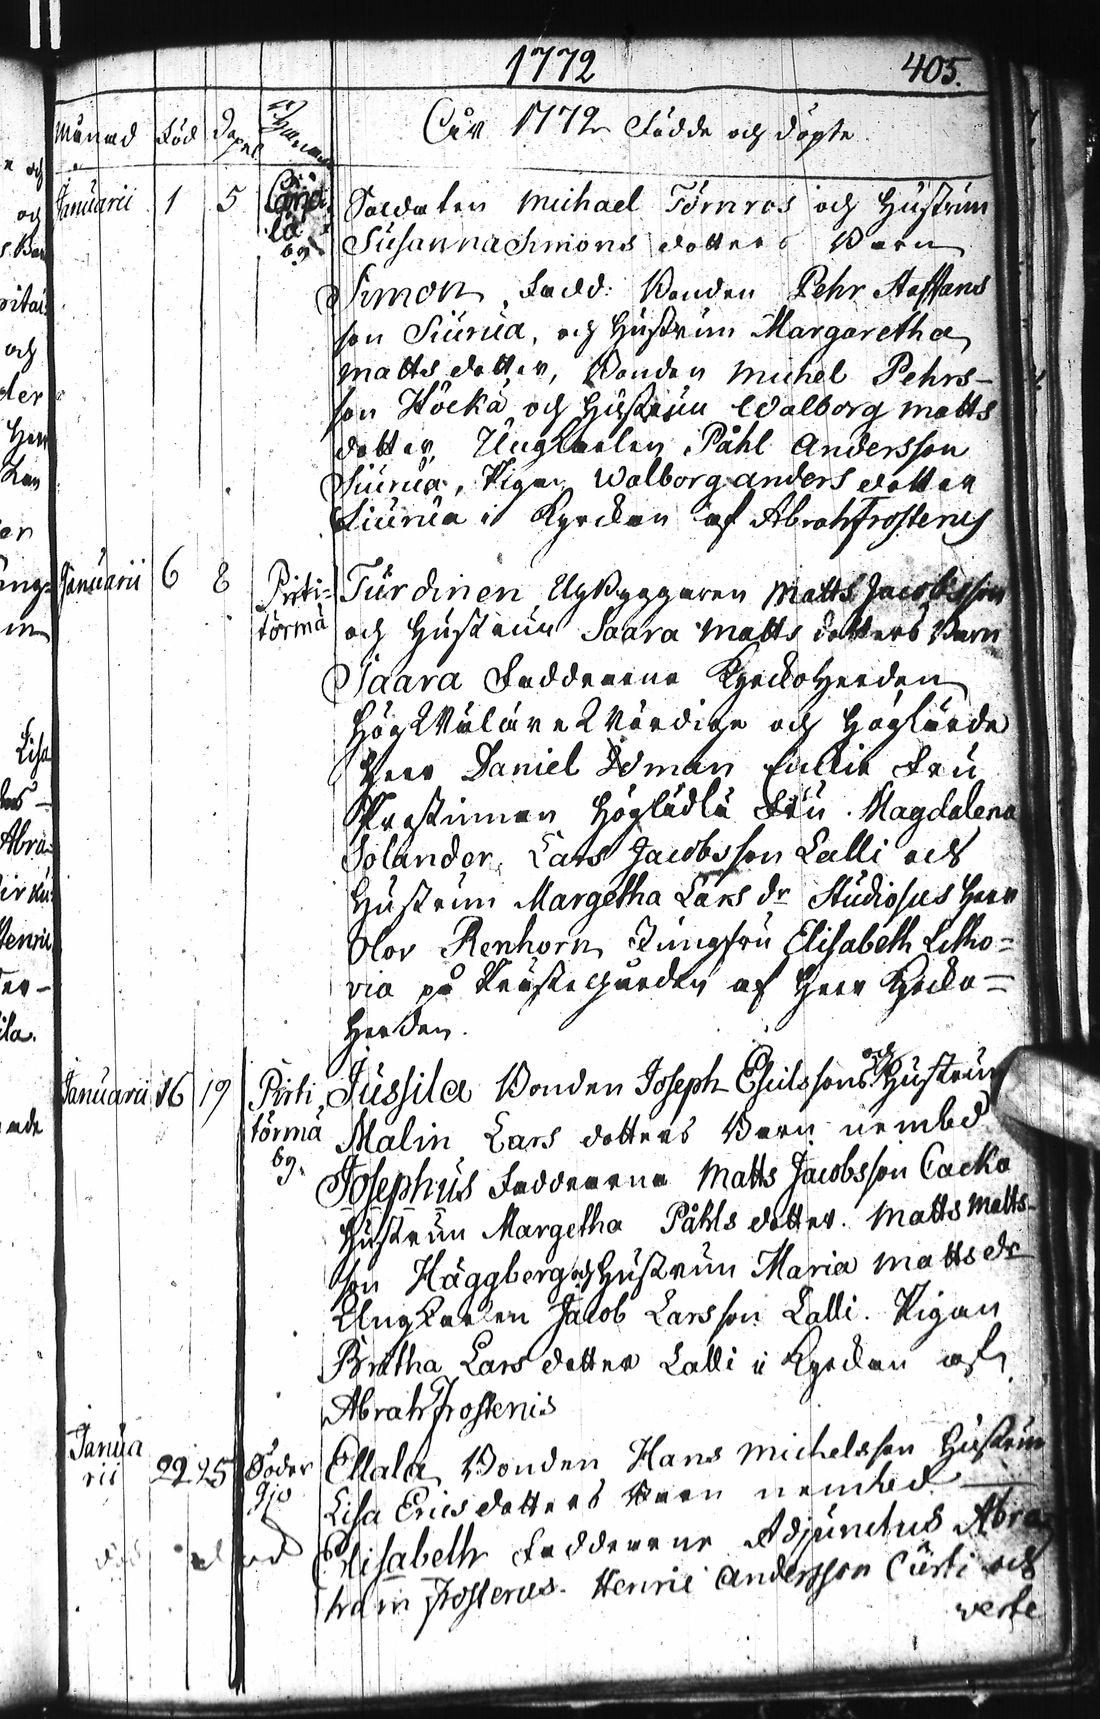 1772
405.
Månad Född Döpt
Åhr 1772 Födde och döpte
Januarii 1 5
by
Soldaten Michael Törnros och Hustrun
Susanna Simons dotters Barn
Simon, Fadd: Bonden Pehr Staffans
son Siurua, och Hustrun Margaretha
Matts dotter, Bonden Michel Pehrs-
son Höckä och Hustrun Walborg Matts
dotter, Ungkarlen Påhl Andersson
Siurua, Pigan Walborg Anders dotter
Siurua i Kyrckan af Abrah Frosterus
Januarii 6 8 Pirti=
törmä
Turdinen Nybyggaren Matts Jacobsson
och Hustrun Saara Matts dotters Barn
Saara Faddrarne Kyrckoherden
HögWälärevördige och Höglärde
Herr Daniel Fru
Prostinnan Höglädla Fru Magdalena
Solander, Lars Jacobsson Lalli och
Hustrun Margetha Lars dr Studiosus Herr
Olov Renhorn Jungfru Elisabeth Litho=
via på Prästegården af Herr Kyrcko=
Herden.
Januarii 16 19 Pirti
törmä
by.
Jussila Bonden Joseph Ehrilssons och Hustrun
Malin Lars dotters Barn nembd
Josephus Faddrarne Matts Jacobsson Cacko
Hustrun Margetha Påhls dotter. Matts Matts-
son Häggberg och Hustrun Maria Matts dr
Ungkarlen Jacob Larsson Lalli. Pigan
Britha Lars dotter Lalli i Kyrckan af
Abrah Frosterus
Janua
rii 22 25 Söder
Ellala Bonden Hans Michelsson Hustrun
Lisa Erics dotters Barn nembd
Elisabeth Faddrarne Adjunctus Abra
ham Frosterus. Henric Andersson Curti och
verte